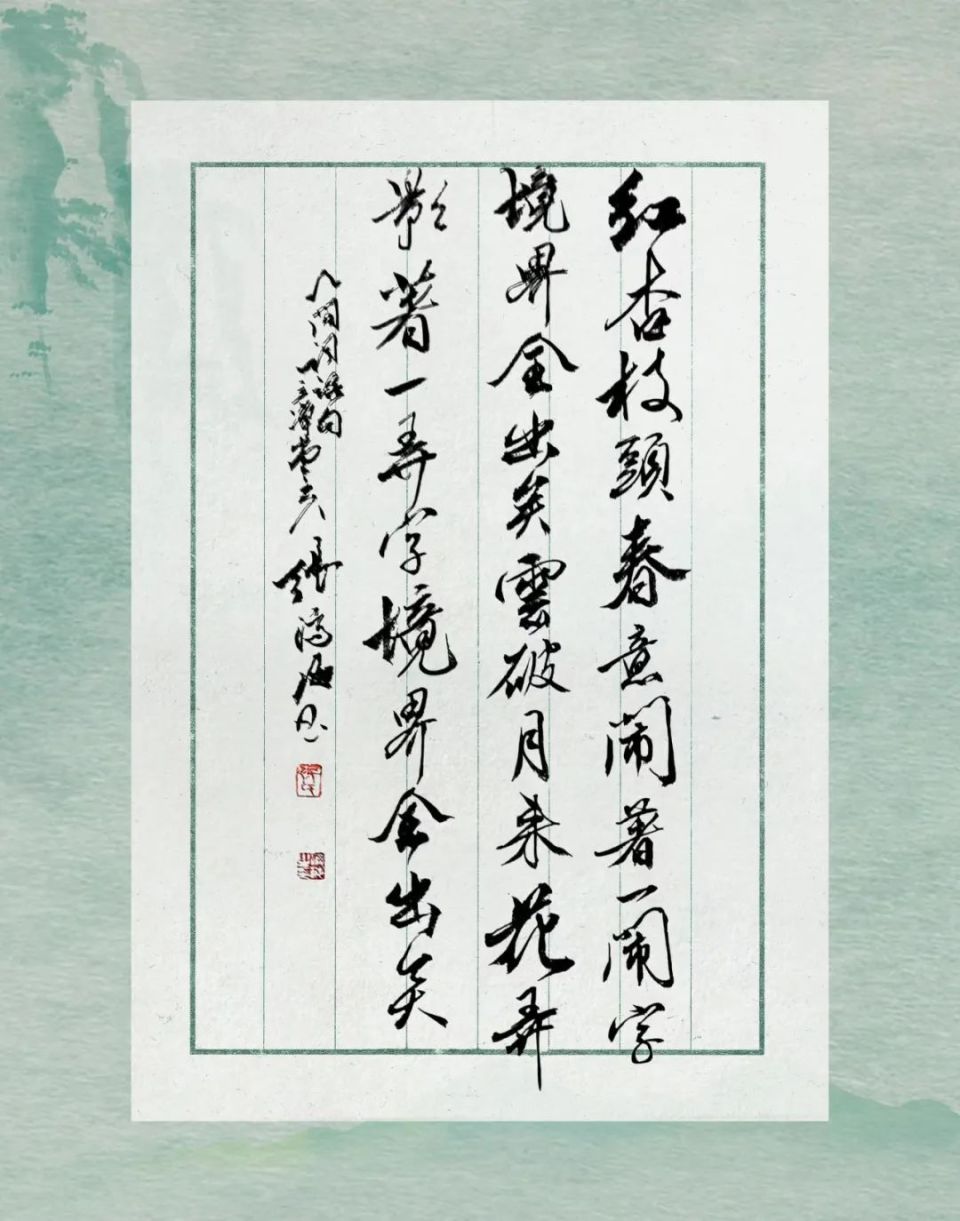 红杏枝頭春意闹著一闹字
境界全出矣雲破月来花弄
影著一弄字境界全出矣
人间词话句
張